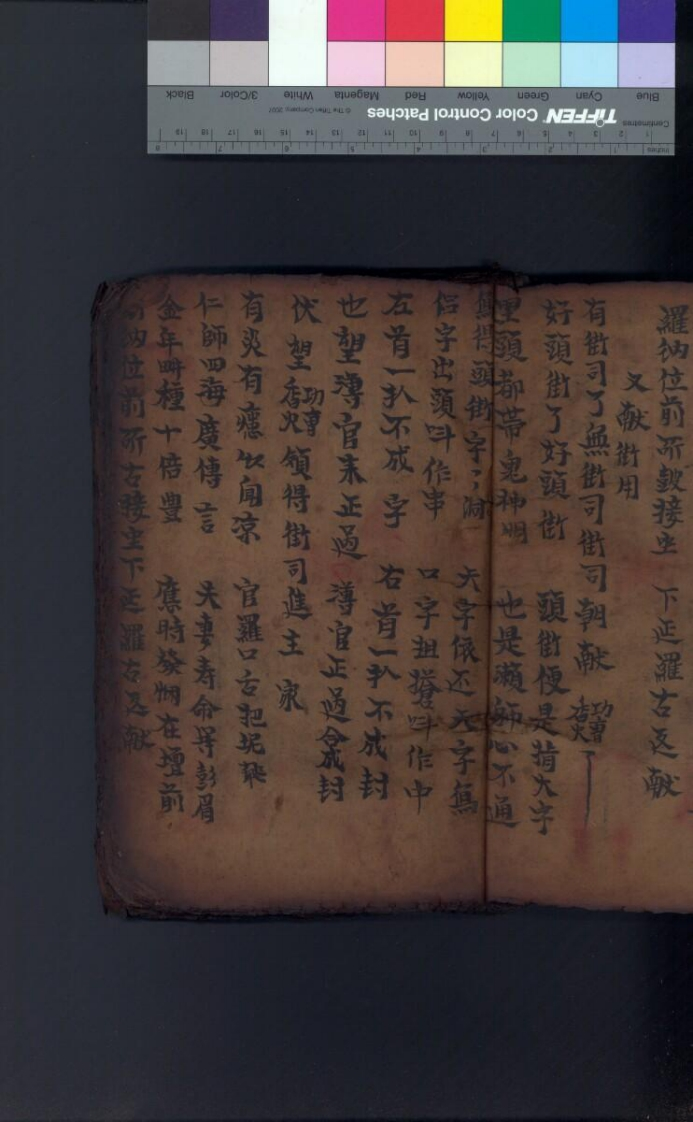 羅納位前所敨接坐　下正羅古返献
又献街用
有街司了無街司街司朝献　功曹香火
好頭街了好頭街　頭街便是指大字
里頭都帶鬼神明　也是瀬師心不通
得頭街字了　大字依还大字為
侣字出頭呌作串　口字担撐呌作中
左首一扒不成字　右首一扒不成封
也望薄官来正過　薄官正過合成封
伏望功曹香火領得街司進主家
有炎有瘾以闻凉　官羅口舌把坭
仁師四海廣傳言　夫妻寿命等彭眉
金年畊種十倍豐　應時發炯在壇前
納位前所古接坐下正羅古返献
Blue Cyan Green Yellow Red Magenta White 3/Color Black
TIFFEN Color Control Patches
© The Tiffen Company, 2007
Centimetres
1 2 3 4 5 6 7 8 9 10 11 12 13 14 15 16 17 18 19
Inches
1 2 3 4 5 6 7 8